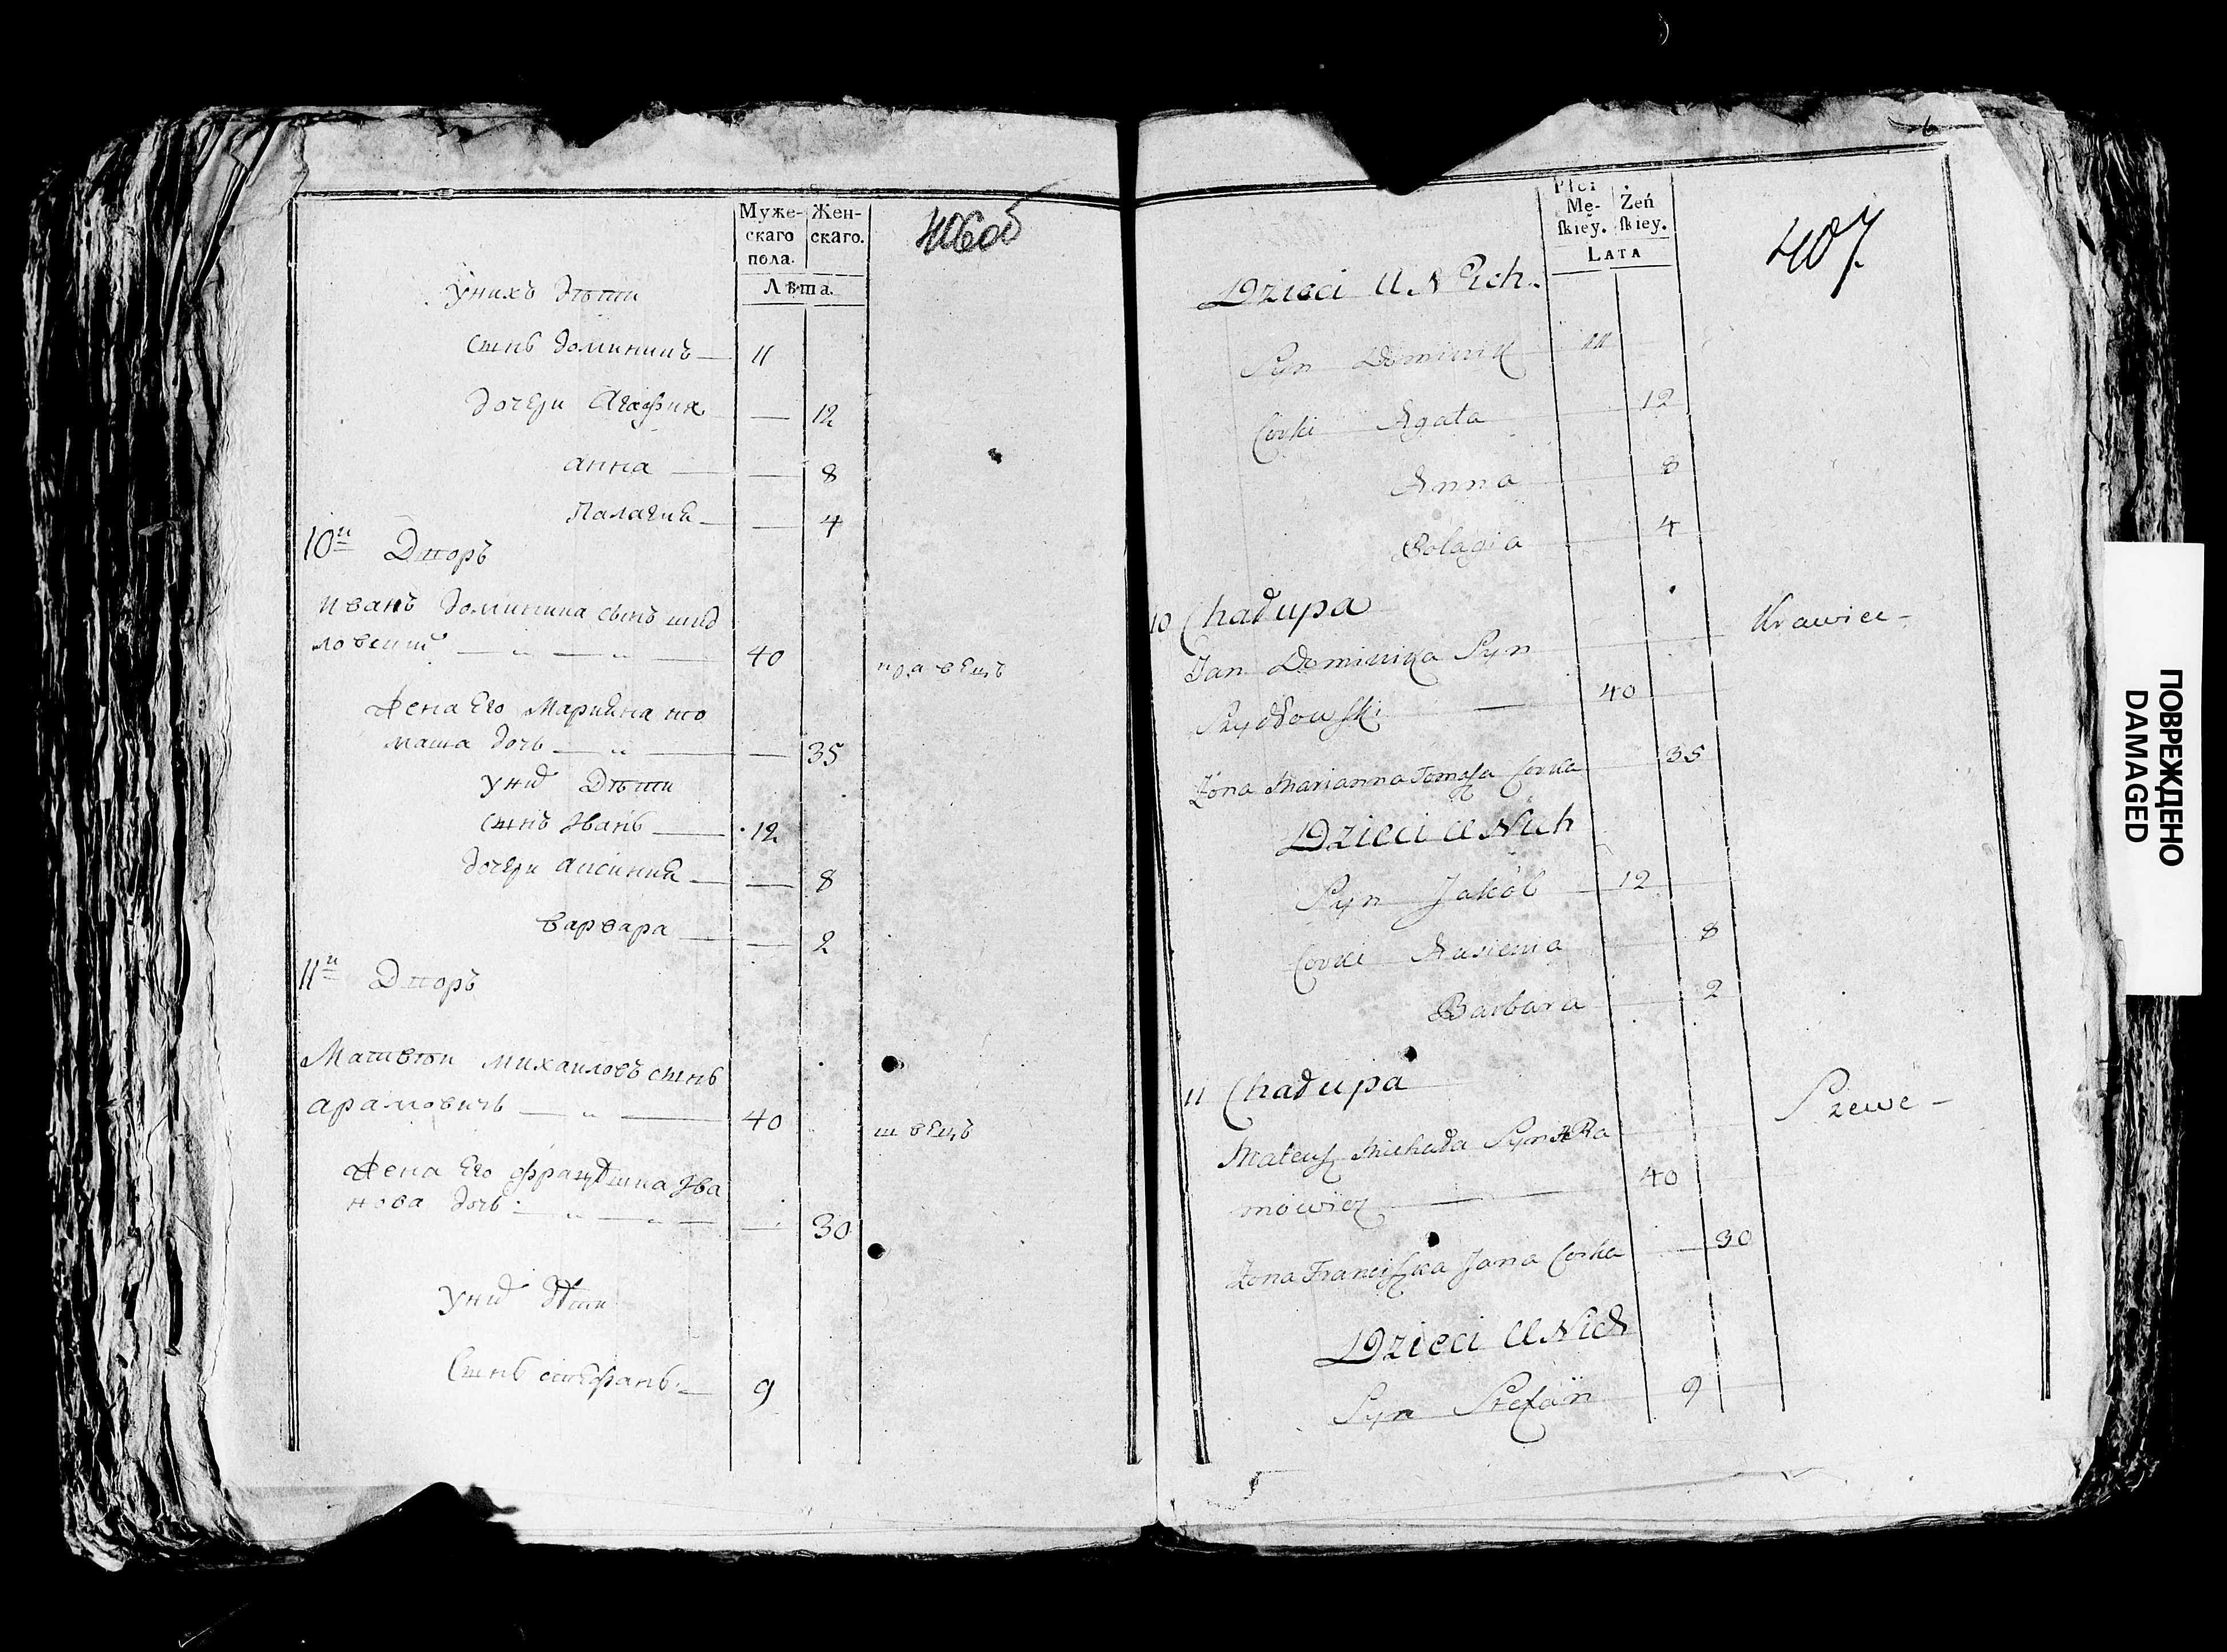 Муже- Жен-
скаго скаго.
пола.
Лѣта.
406об
Унихъ дѣти
сынъ доминикъ — 11
дочери Агафия — 12
анна — 8
Палагия — 4
10й Дворъ
иванъ доминика сынъ шид
ловский — „ — „ — 40 кравецъ
Жена Его Марияна то
маша дочь — „ — 35
У них Дѣти
сынъ Иванъ — 12
дочери аксиния — 8
варвара — 2
11й Дворъ
Матвѣй михаиловъ сынъ
арамовичь — „ — 40 швецъ
Жена Его францишка Ива
нова дочь — „ — „ — 30
У них дѣти
Сынъ стефанъ — 9
6
Płci
Mę- Żeń
ſkiey. ſkiey.
LATA
407.
Dzieci U Nich.
Syn Dominik 11
Corki Agata 12
Anna 8
Polagia 4
10 Chałupa
Krawiec —
Jan Dominika Syn
Szydłowſki — 40
Żona Marianna Tomaſza Corka 35
Dzieci U Nich
Syn Jakób 12
Corki Aksienia 8
Barbara 2
11 Chałupa
Szewc —
Mateuſz Michała Syn Ara
mowicz — 40
Żona Franciſzka Jana Corka 30
Dzieci U Nich
Syn Stefan 9
ПОВРЕЖДЕНО
DAMAGED